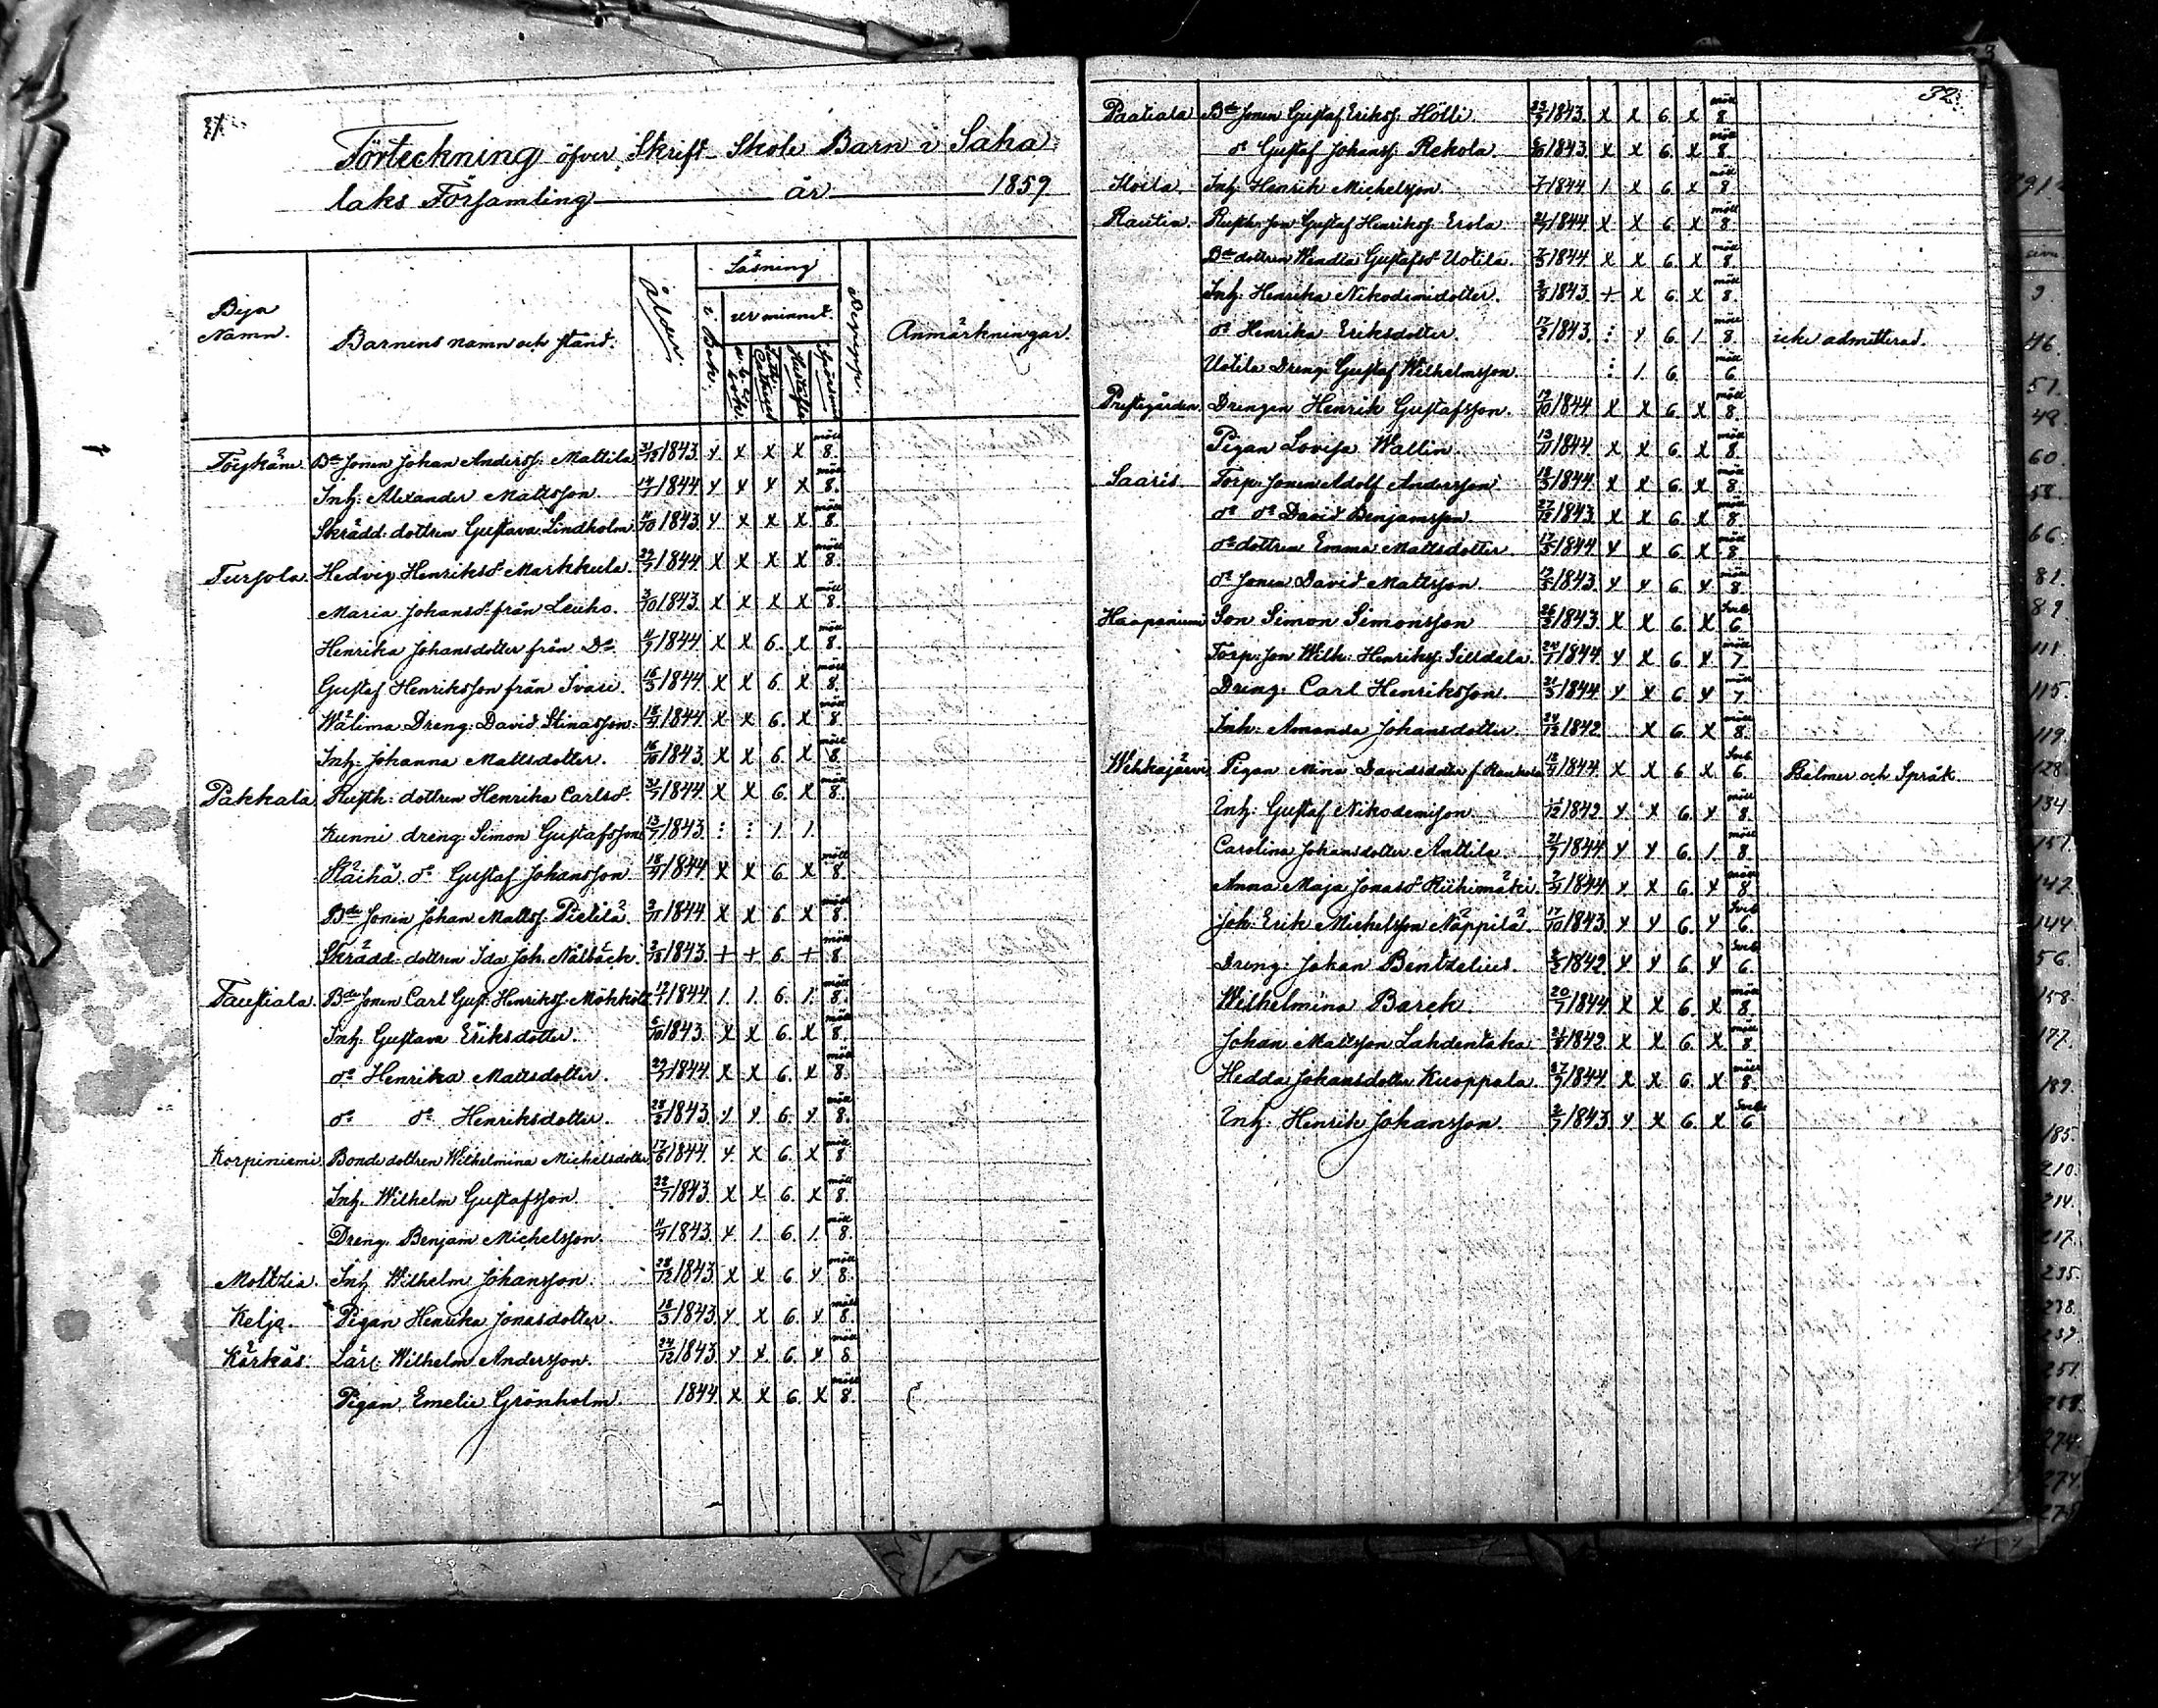 31.
Förteckning öfver Skrift-Skole Barn i Saha
laks Församling år 1859
Bya Namn. Barnens namn och stånd. ålder. Läsning i Bok. ur minnet. Begrepp. Anmärkningar.
Töykäne. Bde Sonen Johan Anderss: Mattila 1843. x x x x mött 8.
Inh: Alexander Mattsson 1844 x x x x mött 8.
Skrädd: dottren Gustava Lindholm 1843. x x x x mött 8.
Tursola. Hedvig Henriksdr Markkula. 1844 x x x x mött 8.
Maria Johansdr från Leuho. 3/10 1843. x x x x mött 8.
Henrika Johansdotter från Do 1844 x x 6. x mött 8.
Gustaf Henriksson från Ivari. 1844. x x 6. x mött 8.
Wälima Dreng: David Stinasson. 1844. x x 6. x mött 8.
Inh: Johanna Mattsdotter. 16/10 1843. x x 6. x mött 8.
Pakkala Rusth: dottren Henrika Carlsdr. 1844. x x 6. x mött 8.
Kunni dreng: Simon Gustafsson 13/7 1843. : : 1. 1.
Staihä do Gustaf Johansson 1844. x x 6. x mött 8.
Bde Sonen Johan Matts: Pietilä. 1844. x x 6 x mött 8.
Skrädd: dottren Ida Joh. Nålbäck. 1843. + + 6. + mött 8.
Taustiala. Bde Sonen Carl Gust: Henriks: Mökkölä 1844. 1. 1. 6. 1. mött 8.
Inh: Gustava Eriksdotter. 6/10 1843. x x 6. x mött 8.
do Henrika Mattsdotter. 1844. x x 6. x mött 8.
do do Henriksdotter. 1843. x x 6. x mött 8.
Korpiniemi Bondedottren Wilhelmina Michelsdotter 1844. x x 6. x mött 8
Inh: Wilhelm Gustafsson 22/7 1843. x x 6. x mött 8.
Dreng. Benjam Michelsson. 1843. x 1. 6. 1. mött 8
Moltzia. Inh Wilhelm Johansson. 28/12 1843. x x 6. x mött 8.
Kelja. Pigan Henrika Jonasdotter. 18/3 1843. x x 6. x mött 8.
Kärkäs: Lärl: Wilhelm Andersson. 24/12 1843. x x 6. x mött 8
Pigan Emelie Grönholm. 1844. x x 6. x mött 8.
32.
Paatiala Bde Sonen Gustaf Eriks: Hölli. 1843. x x 6. x mött 8.
do Gustaf Johanss: Rekola. 1843. x x 6. x mött 8.
Inh: Henrik Michelsson. 1844 1 x 6 x mött 8.
Rautia. Rusth: son Gustaf Henriks: Erola. 1844 x x 6. x mött 8.
Bde dottren Wendla Gustafsdr Uotila. 1844. x x 6. x mött 8.
Inh: Henrika Nikodemidotter. 1843. + x 6. x mött 8.
do Henrika Eriksdotter. 1843. : x 6. 1 mött 8. icke admitterad.
Uotila Dreng: Gustaf Wilhelmsson. : 1. 6. mött 6.
Prestegården. Drengen Henrik Gustafsson. 12/10 1844 x x 6. x mött 8.
Pigan Lovisa Wallin. 1844. x x 6. x mött 8.
Saaris Torp: Sonen Adolf Andersson 1844 x x 6. x mött 8.
do do David Benjamsson. 27/12 1843. x x 6. x mött 8.
do dottren Emma Mattsdotter. 1844 x x 6. x mött 8.
do Sonen David Mattsson. 1843. x x 6. x mött 8.
Haapaniemi Son Simon Simonsson 1843. x x 6. x Svb. 6.
Torp: son Wilh: Henriks: Silldala. 1844. x x 6. x mött 7
Dreng: Carl Henriksson. 1844. x x 6. x mött 7.
Inh: Amanda Johansdotter. 24/12 1842. x 6. x mött 8.
Wehkajärvi Pigan Mina Davidsdotter f. 1844. x x 6 x Svb. 6. Balmer och Språk.
Inh: Gustaf Nikodemisson. 1842 x x 6. x mött 8.
Carolina Johansdotter Anttila. 21/7 1844 x x 6. 1 mött 8.
Anna Maja Jonasdr Riihimäki. 1844 x x 6. x mött 8.
Joh: Erik Michelsson Näppilä. 17/10 1843. x x 6. x Svb. 6.
Dreng: Johan Bentzelius. 1842 x x 6. x Svb. 6.
Wilhelmina Barck. 20/7 1844 x x 6. x mött 8.
Johan Mattsson Lahdentaka 1842. x x 6. x mött 8.
Hedda Johansdotter Kuoppala. 1844. x x 6. x mött 8.
Inh: Henrik Johansson. 1843. x x 6. x Svb. 6
46.
51.
49.
60.
58.
66.
81.
89.
111
115.
119.
128.
134
142.
144.
56.
158.
177.
189.
185.
210.
214.
217.
235.
238.
251.
258.
274.
274.